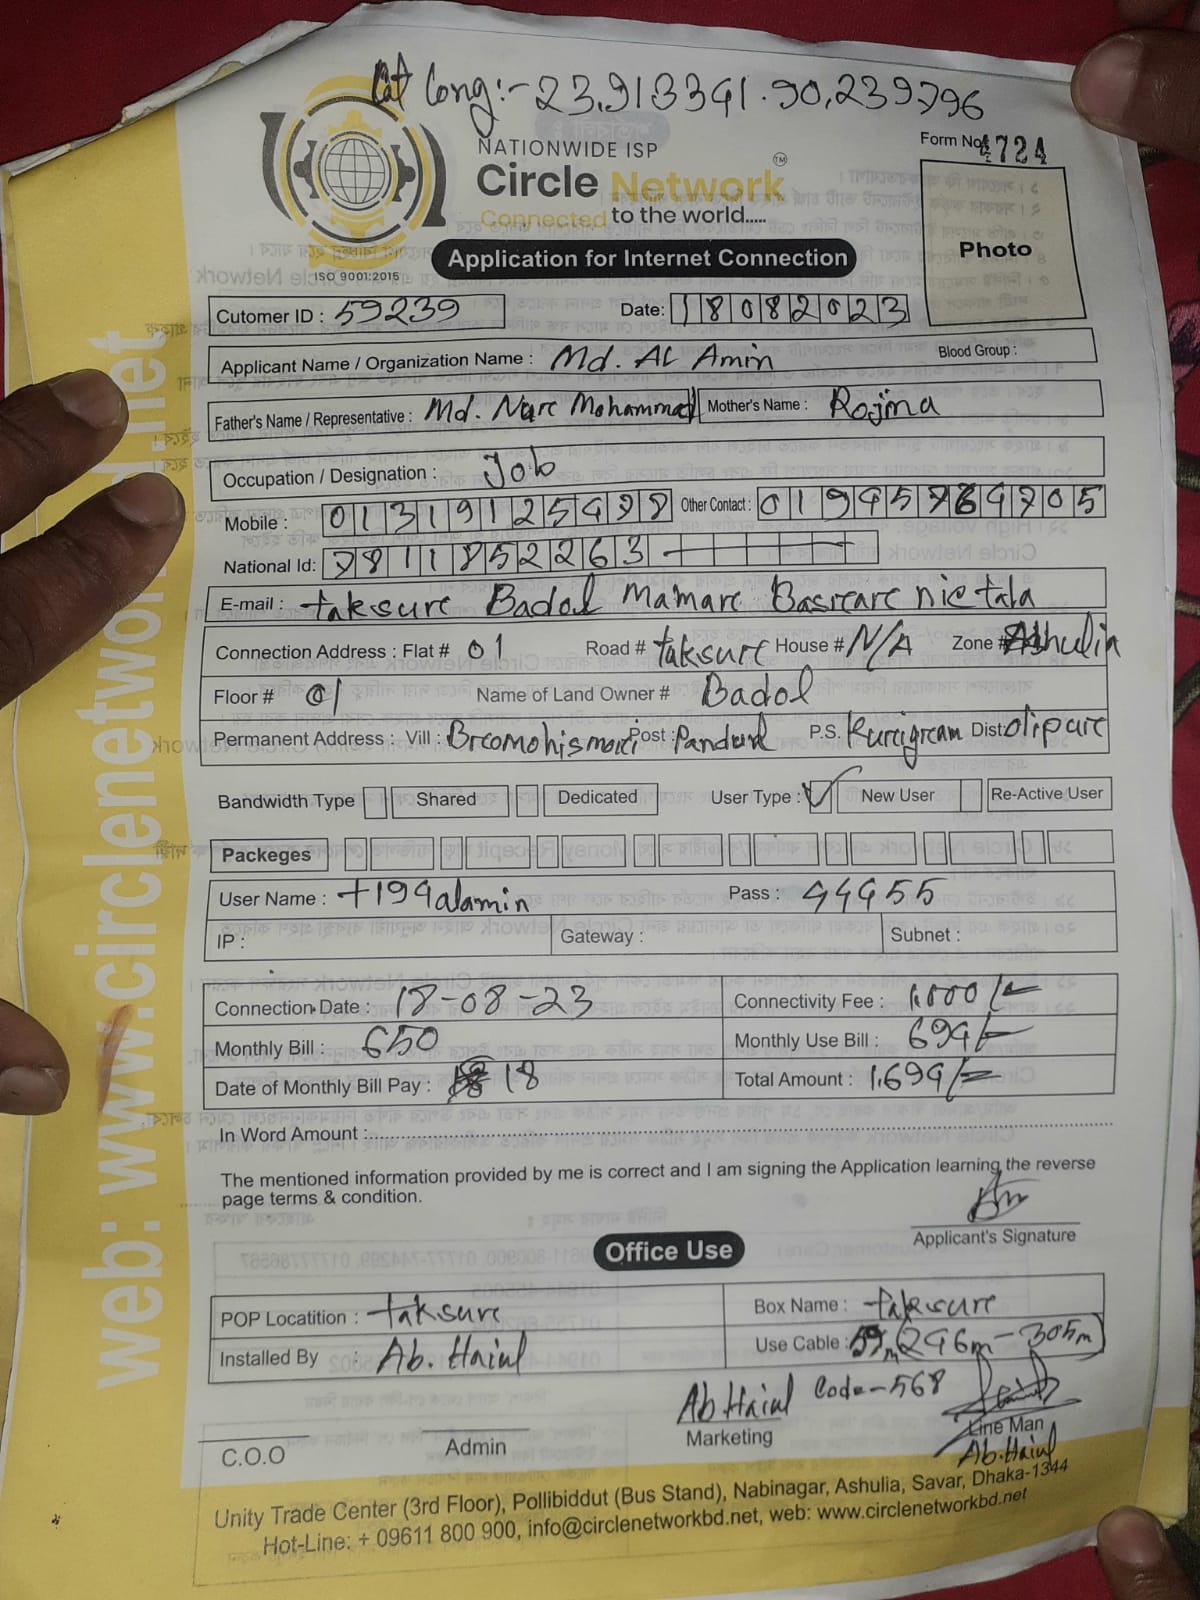 Lat Long:- 23.913341.90,239796
Form No 4724
NATIONWIDE ISP
Circle Network TM
Connected to the world.....
ISO 9001:2015
Application for Internet Connection
Photo
Cutomer ID : 59239 Date: 18082023
Applicant Name / Organization Name : Md. AL Amin Blood Group :
Father's Name / Representative : Md. Nure Mohammad Mother's Name : Rojina
Occupation / Designation : Job
Mobile : Other Contact :
National Id: 7811852263
E-mail : taksure Badol Mamare nictala
Connection Address : Flat # 01 Road # taksure House # N/A Zone # Ashulia
Floor # 01 Name of Land Owner # Badol
Permanent Address : Vill : Post : Pandul P.S. Kurigram Dist: Olipure
Bandwidth Type Shared Dedicated User Type : New User Re-Active User
Packeges
User Name : t194alamin Pass : 44455
IP : Gateway : Subnet :
Connection Date : 18-08-23 Connectivity Fee : 1.000/=
Monthly Bill : 650 Monthly Use Bill : 694/=
Date of Monthly Bill Pay : 18 Total Amount : 1,694/=
In Word Amount :
The mentioned information provided by me is correct and I am signing the Application learning the reverse
page terms & condition.
Applicant's Signature
Office Use
POP Locatition : taksure Box Name : taksure
Installed By : Ab. Haiul Use Cable : 59m (246m - 305m)
Ab Haiul Code-568
C.O.O Admin Marketing Line Man
Ab. Haiul
Unity Trade Center (3rd Floor), Pollibiddut (Bus Stand), Nabinagar, Ashulia, Savar, Dhaka-1344
Hot-Line: + 09611 800 900, info@circlenetworkbd.net, web: www.circlenetworkbd.net